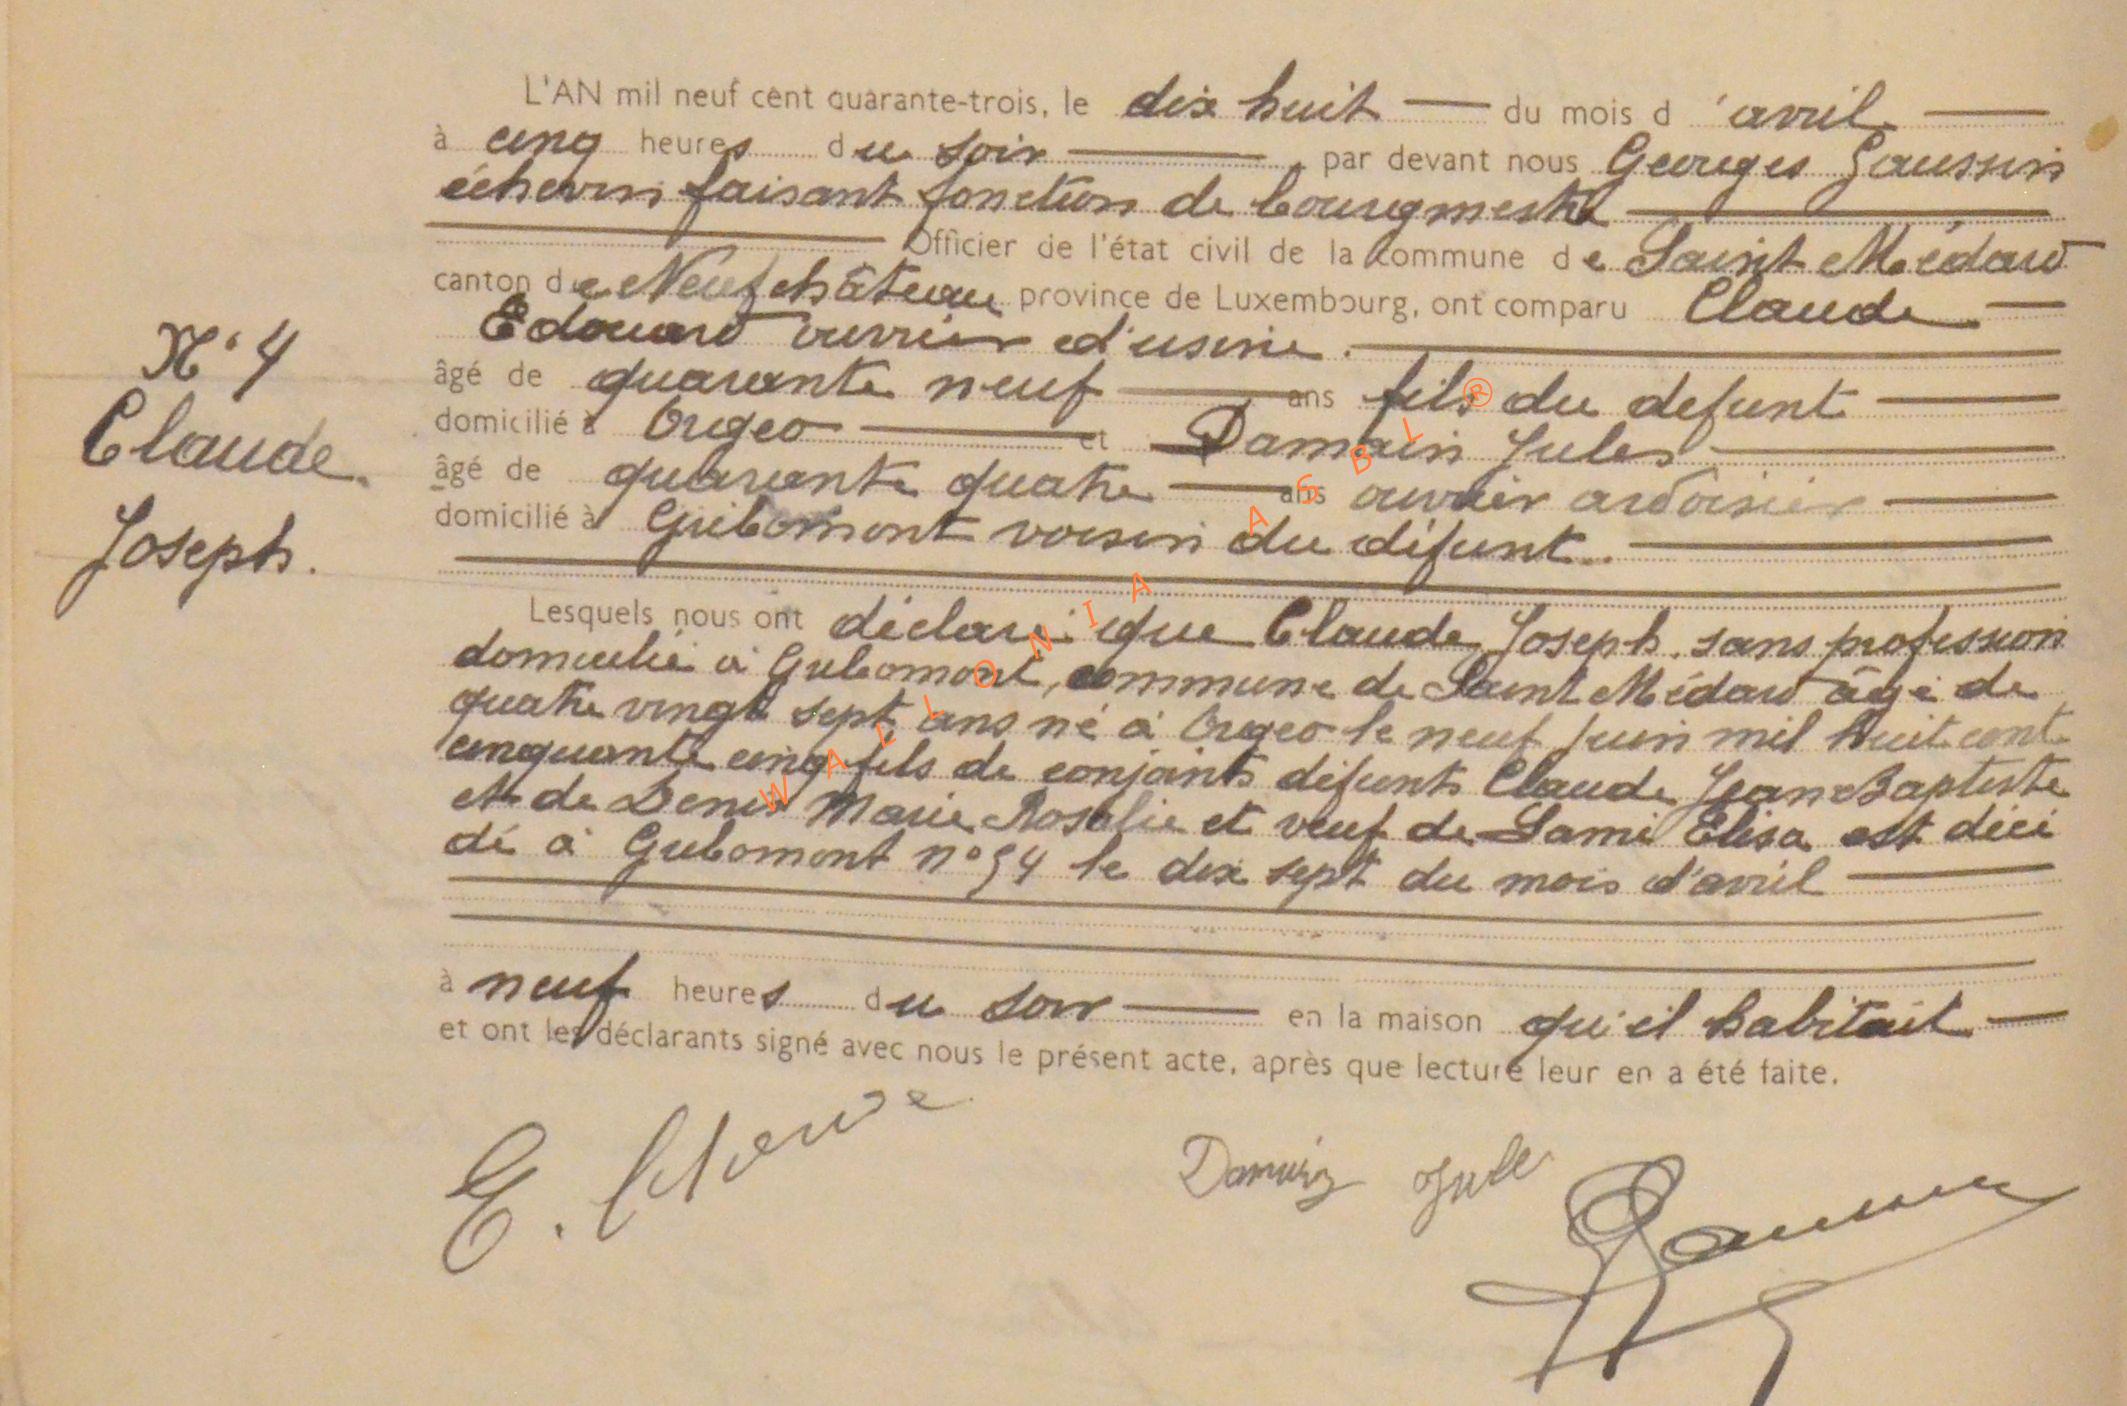 L'AN mil neuf cent quarante-trois, le dix huit du mois d'avril
à cinq heures du soir, par devant nous Georges Goussin
échevin faisant fonction de bourgmestre
Officier de l'état civil de la commune de Saint Médard
canton de Neufchâteau province de Luxembourg, ont comparu Claude
Edouard ouvrier d'usine.
N° 4
Claude
Joseph.
âgé de quarante neuf ans fils du defunt
domicilié à Orgeo et Damain Jules
âgé de quarante quatre ans ouvrier ardoisier
domicilié à Gribomont voisin du défunt.
Lesquels nous ont déclaré que Claude, Joseph, sans profession
domicilié à Gribomont, commune de Saint Médard âgé de
quatre vingt sept ans né à Orgeo le neuf juin mil huit cent
cinquante cinq fils de conjoints défunts Claude Jean Baptiste
et de Denis Marie Rosalie et veuf de Lami Elisa est décé
dé à Gribomont n° 54 le dix sept du mois d'avril
à neuf heures du soir en la maison qu'il habitait
et ont les déclarants signé avec nous le présent acte, après que lecture leur en a été faite.
E. Claude
Damain Jules
WALLONIA ASBL ®